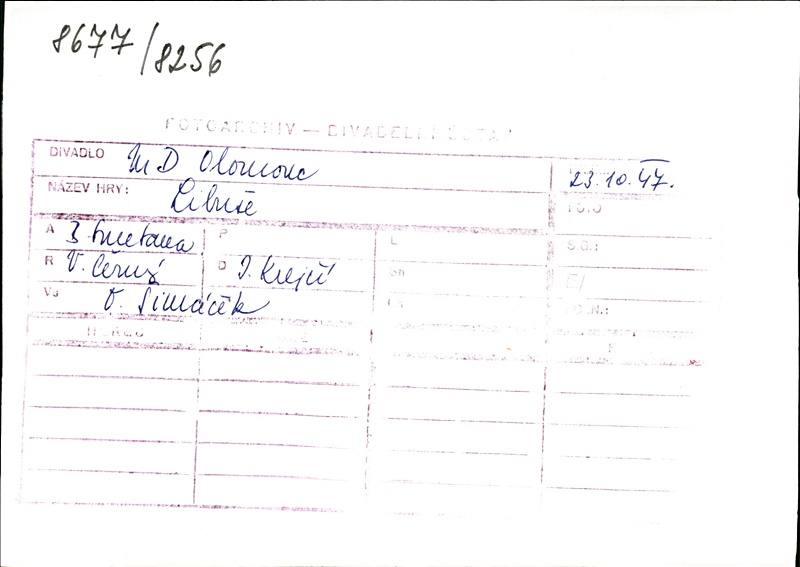 8677/8256
FOTOARCHIV — DIVADELNÍ ÚSTAV
DIVADLO MD Olomouc
23.10.47.
NÁZEV HRY: Libuše
FOTO
A B. Smetana P L S.G.:
R V. Černý D J. Krejčí Sh
VJ O. Šimáček
HEREC